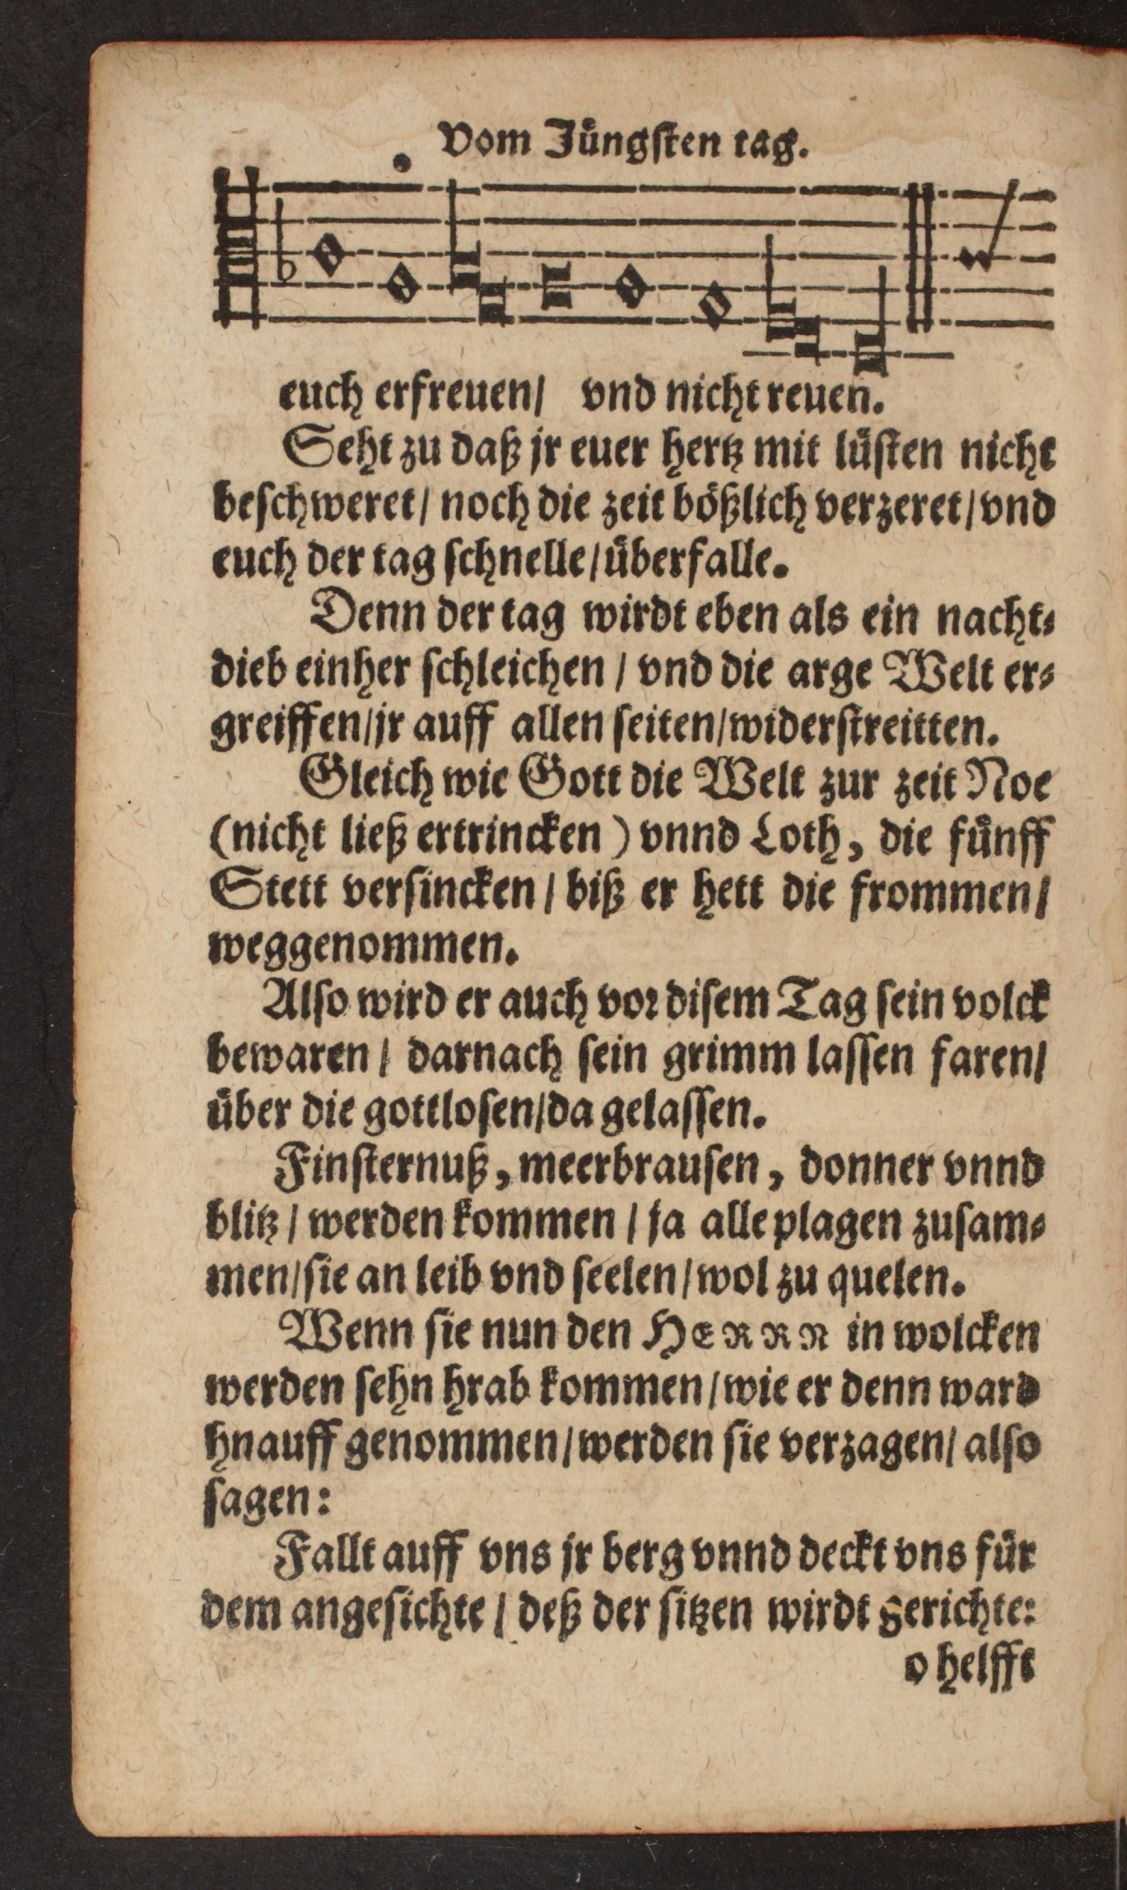 Vom Jüngsten tag.
euch erfreuen/ vnd nicht reuen.
Seht zu daß jr euer hertz mit lüsten nicht
beschweret/ noch die zeit bößlich verzeret/ vnd
euch der tag schnelle/ überfalle.
Denn der tag wirdt eben als ein nacht-
dieb einher schleichen / vnd die arge Welt er-
greiffen/ jr auff allen seiten/ widerstreitten.
Gleich wie Gott die Welt zur zeit Noe
(nicht ließ ertrincken) vnnd Loth, die fünff
Stett versincken / biß er hett die frommen/
weggenommen.
Also wird er auch vor disem Tag sein volck
bewaren / darnach sein grimm lassen faren/
über die gottlosen/ da gelassen.
Finsternuß, meerbrausen, donner vnnd
blitz / werden kommen / ja alle plagen zusam-
men/ sie an leib vnd seelen/ wol zu quelen.
Wenn sie nun den HERRN in wolcken
werden sehn hrab kommen/ wie er denn ward
hnauff genommen/ werden sie verzagen/ also
sagen:
Fallt auff vns jr berg vnnd deckt vns für
dem angesichte / deß der sitzen wirdt gerichte:
o helfft